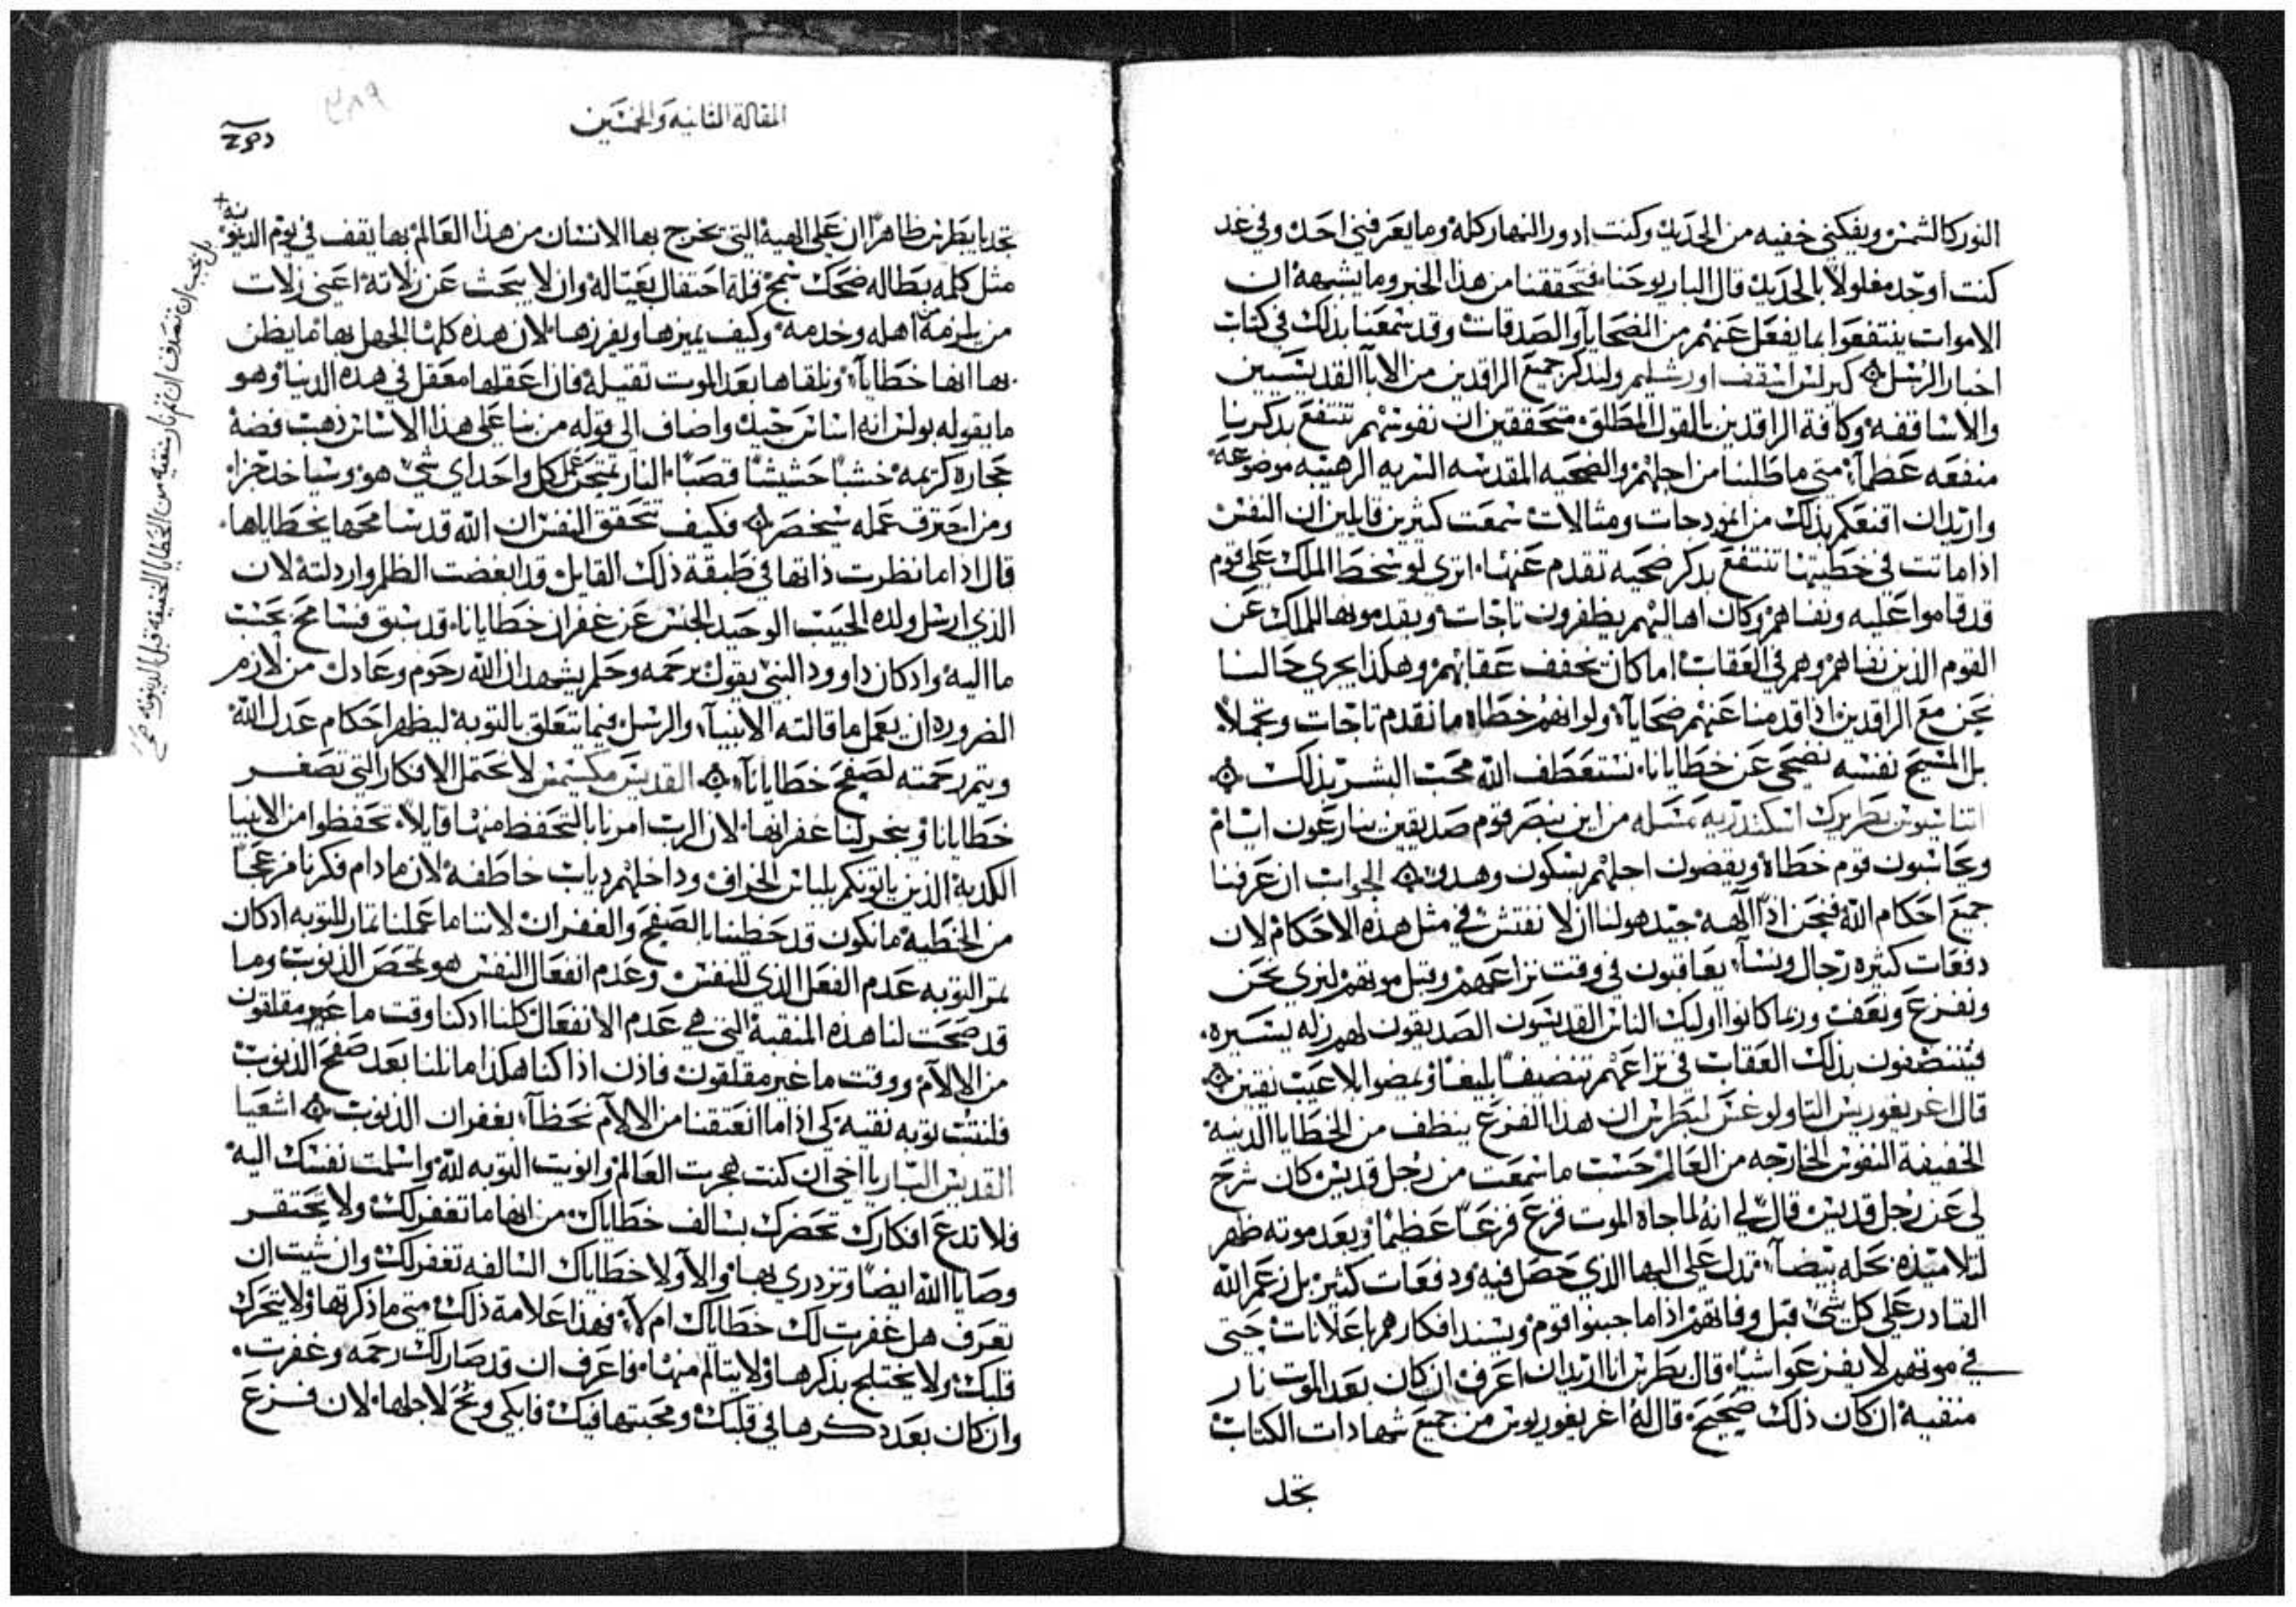 النور كالشمس ويفكني خفيه من الحديد وكنت ادور النهار كله وما يعرفني احد وفي غد
كنت اوجد مغلولا بالحديد قال البار يوحنا فتحققنا من هذا الخبر وما يشبهه ان
الاموات ينتفعوا بما يفعل عنهم من الضحايا والصدقات وقد سمعنا بذلك في كتاب
اخبار الرسل كيرلس اسقف اورشليم وليذكر جميع الراقدين من الابا القديسين
والاساقفه وكافة الراقدين بالقول المطلق متحققين ان نفوسهم تنتفع بذكرنا
منفعه عظما متى ما طلبنا من اجلهم والضحيه المقدسه السريه الرهيبه موضوعه
واريد ان اقنعكم بذلك من انموذجات ومثالات سمعت كثيرين قايلين ان النفس
اذا ماتت في خطيتها تنتفع بذكر ضحيه تقدم عنها اترى لو سخط الملك على قوم
قد قاموا عليه ونفاهم وكان اهاليهم يظفرون تاجات ويقدمونها للملك عن
القوم الذين نفاهم وهم في العقاب اما كان يخفف عقابهم وهكذا يجري حالنا
نحن مع الراقدين اذا قدمنا عنهم ضحايا ولو انهم خطاه ما نقدم تاجات وتجملا
بل المسيح نفسه نضحي عن خطايانا نستعطف الله محب البشر بذلك
اثناسيوس بطريرك اسكندريه مسله من اين ينبصر قوم صديقين ينازعون ايام
ويحاسبون قوم خطاة ويقضون اجلهم بسكون وهدو الجواب ان عرفنا
جميع احكام الله فنحن اذا الهه جيد هو لنا ان لا نفتش في مثل هذه الاحكام لان
دفعات كثيره رجال ونسا يعاقبون في وقت نزاعهم وقبل موتهم لنرى نحن
ونفزع ونعف وربما كانوا اوليك الناس القديسون الصديقون لهم زله يسيره
فيتنضفون بذلك العقاب في نزاعهم تنضيفا بليغا ويمضوا بلا عيب نقين
قال اغريغوريس الثاولوغس لبطرس ان هذا الفزع ينظف من الخطايا الدنيه
الخفيفة النفوس الخارجه من العالم حسب ما سمعت من رجل قديس كان شرح
لي عن رجل قديس قال لي انه لما جاه الموت فزع فزعا عظيما وبعد موته ظهر
لتلاميذه بحله بيضا تدل على البها الذي حصل فيه ودفعات كثير بل زعم الله
القادر على كل شي قبل وفاتهم اذا ما جبنوا قوم ويسند افكارهم باعلانات حتى
في موتهم لا يفزعوا شيا قال بطرس انا اريد ان اعرف ان كان بعد الموت نار
منقيه ان كان ذلك صحيح قال له اغريغوريوس من جميع شهادات الكتاب
تجد
المقالة الثانيه والخمسين
٣٨٩
تجد يا بطرس ظاهرا ان على الهية التي يخرج بها الانسان من هذا العالم بها يقف في يوم الدينونه
مثل كلمه بطاله ضحك سمج قلة احتفال بعياله وان لا يبحث عن زلاته اعني زلات
من يلزمه من اهله وخدمه وكيف يميزها ويفرزها لان هذه كلها الجهل بها ما يظن
بها انها خطايا ونلقاها بعد الموت ثقيله فاذا عقلها معقل في هذه الدنيا وهو
ما يقوله بولس انه اساس جيد واضاف الى قوله من بنا على هذا الاساس ذهب فضة
حجارة كريمه خشبا حشيشا قصبا النار تمتحن عمل كل واحد اي شي هو وسياخذ جزا
ومن احترق عمله سيخصر فكيف تحقق النفس ان الله قد سامحها بخطاياها
قال اذا ما نظرت ذاتها في طبقة ذلك القايل قد ابغضت الظلم وارذلته لان
الذي ارسل ولده الحبيب الوحيد الجنس عن غفران خطايانا قد سبق فسامح بحسب
ما اليه واذ كان داوود النبي يقول برحمه وحلم يشهد ان الله رحوم وعادل من لازم
الضروره ان يعمل ما قالته الانبيا والرسل فيما يتعلق بالتوبة ليظهر احكام عدل الله
ويتم رحمته لصفح خطايانا القديس مكسيمس لا تحتمل الافكار التي تصغر
خطايانا وينجر لنا غفرانها لان الرب امرنا بالتحفظ منها قايلا تحفظوا من الانبيا
الكذبة الذين ياتونكم بلباس الخراف وداخلهم دياب خاطفه لان ما دام فكرنا مزعجا
من الخطيه ما نكون قد حظينا بالصفح والغفران لاننا ما عملنا ثمار للتوبه اذ كان
ثمر التوبه عدم الفعل الذي للنفس وعدم انفعال النفس هو تمحص الذنوب وما
قد صحت لنا هذه المنقبة التي هي عدم الانفعال كلنا اذ كنا وقت ما غير مقلقون
من الالام ووقت ما غير مقلقون فاذن اذا كنا هكذا ما نلنا بعد صفح الذنوب
فلنتب توبه نقيه كي اذا ما انعتقنا من الالام نحظا بغفران الذنوب اشعيا
القديس البار يا اخي ان كنت هجرت العالم وانويت التوبه لله واسلمت نفسك اليه
فلا تدع افكارك تحضرك بسالف خطاياك من انها ما تغفر لك ولا يحتقر
وصايا الله ايضا وتزدري بها والا ولا خطاياك السالفه تغفر لك وان شيت ان
تعرف هل غفرت لك خطاياك ام لا فهذا علامة ذلك متى ما ذكرتها ولا يتحرك
قلبك ولا يختلج بذكرها ولا يتالم منها فاعرف ان قد صار لك رحمه وغفرت
وان كان بعد ذكرها في قلبك ومحبتها فيك فابكي ونح لاجلها لان فزع
بل يجب ان نصدق ان ثم نار منقيه من الخطايا الخفيفة قبل الدينونه صح